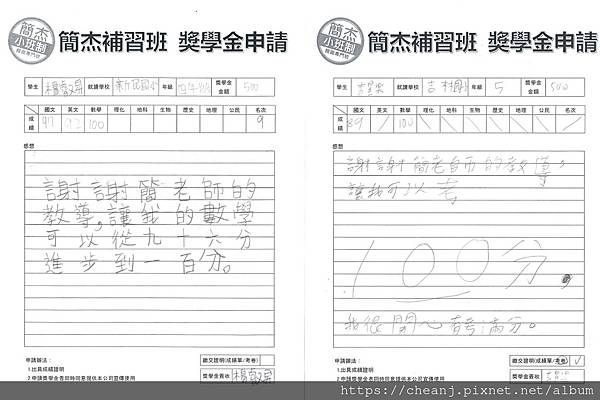 簡杰
小班制
簡杰補習班 獎學金申請
學生 就讀學校 年級 獎學金金額 500
國文 英文 數學 理化 地科 生物 歷史 地理 公民 名次
成績 97 92 100 9
感想
謝謝簡老師的
教導,讓我的數學
可以從九十六分
進步到一百分。
申請辦法:
1.出具成績證明
2.申請獎學金者同時同意提供本公司宣傳使用
繳交證明(成績單/考卷)
獎學金簽收
簡杰
小班制
簡杰補習班 獎學金申請
學生 就讀學校 年級 5 獎學金金額 500
國文 英文 數學 理化 地科 生物 歷史 地理 公民 名次
成績 89 100
感想
謝謝簡老師的教導,
讓我可以考
100分。
我很開心有考滿分。
申請辦法:
1.出具成績證明
2.申請獎學金者同時同意提供本公司宣傳使用
繳交證明(成績單/考卷)
獎學金簽收
https://cheanj.pixnet.net/album